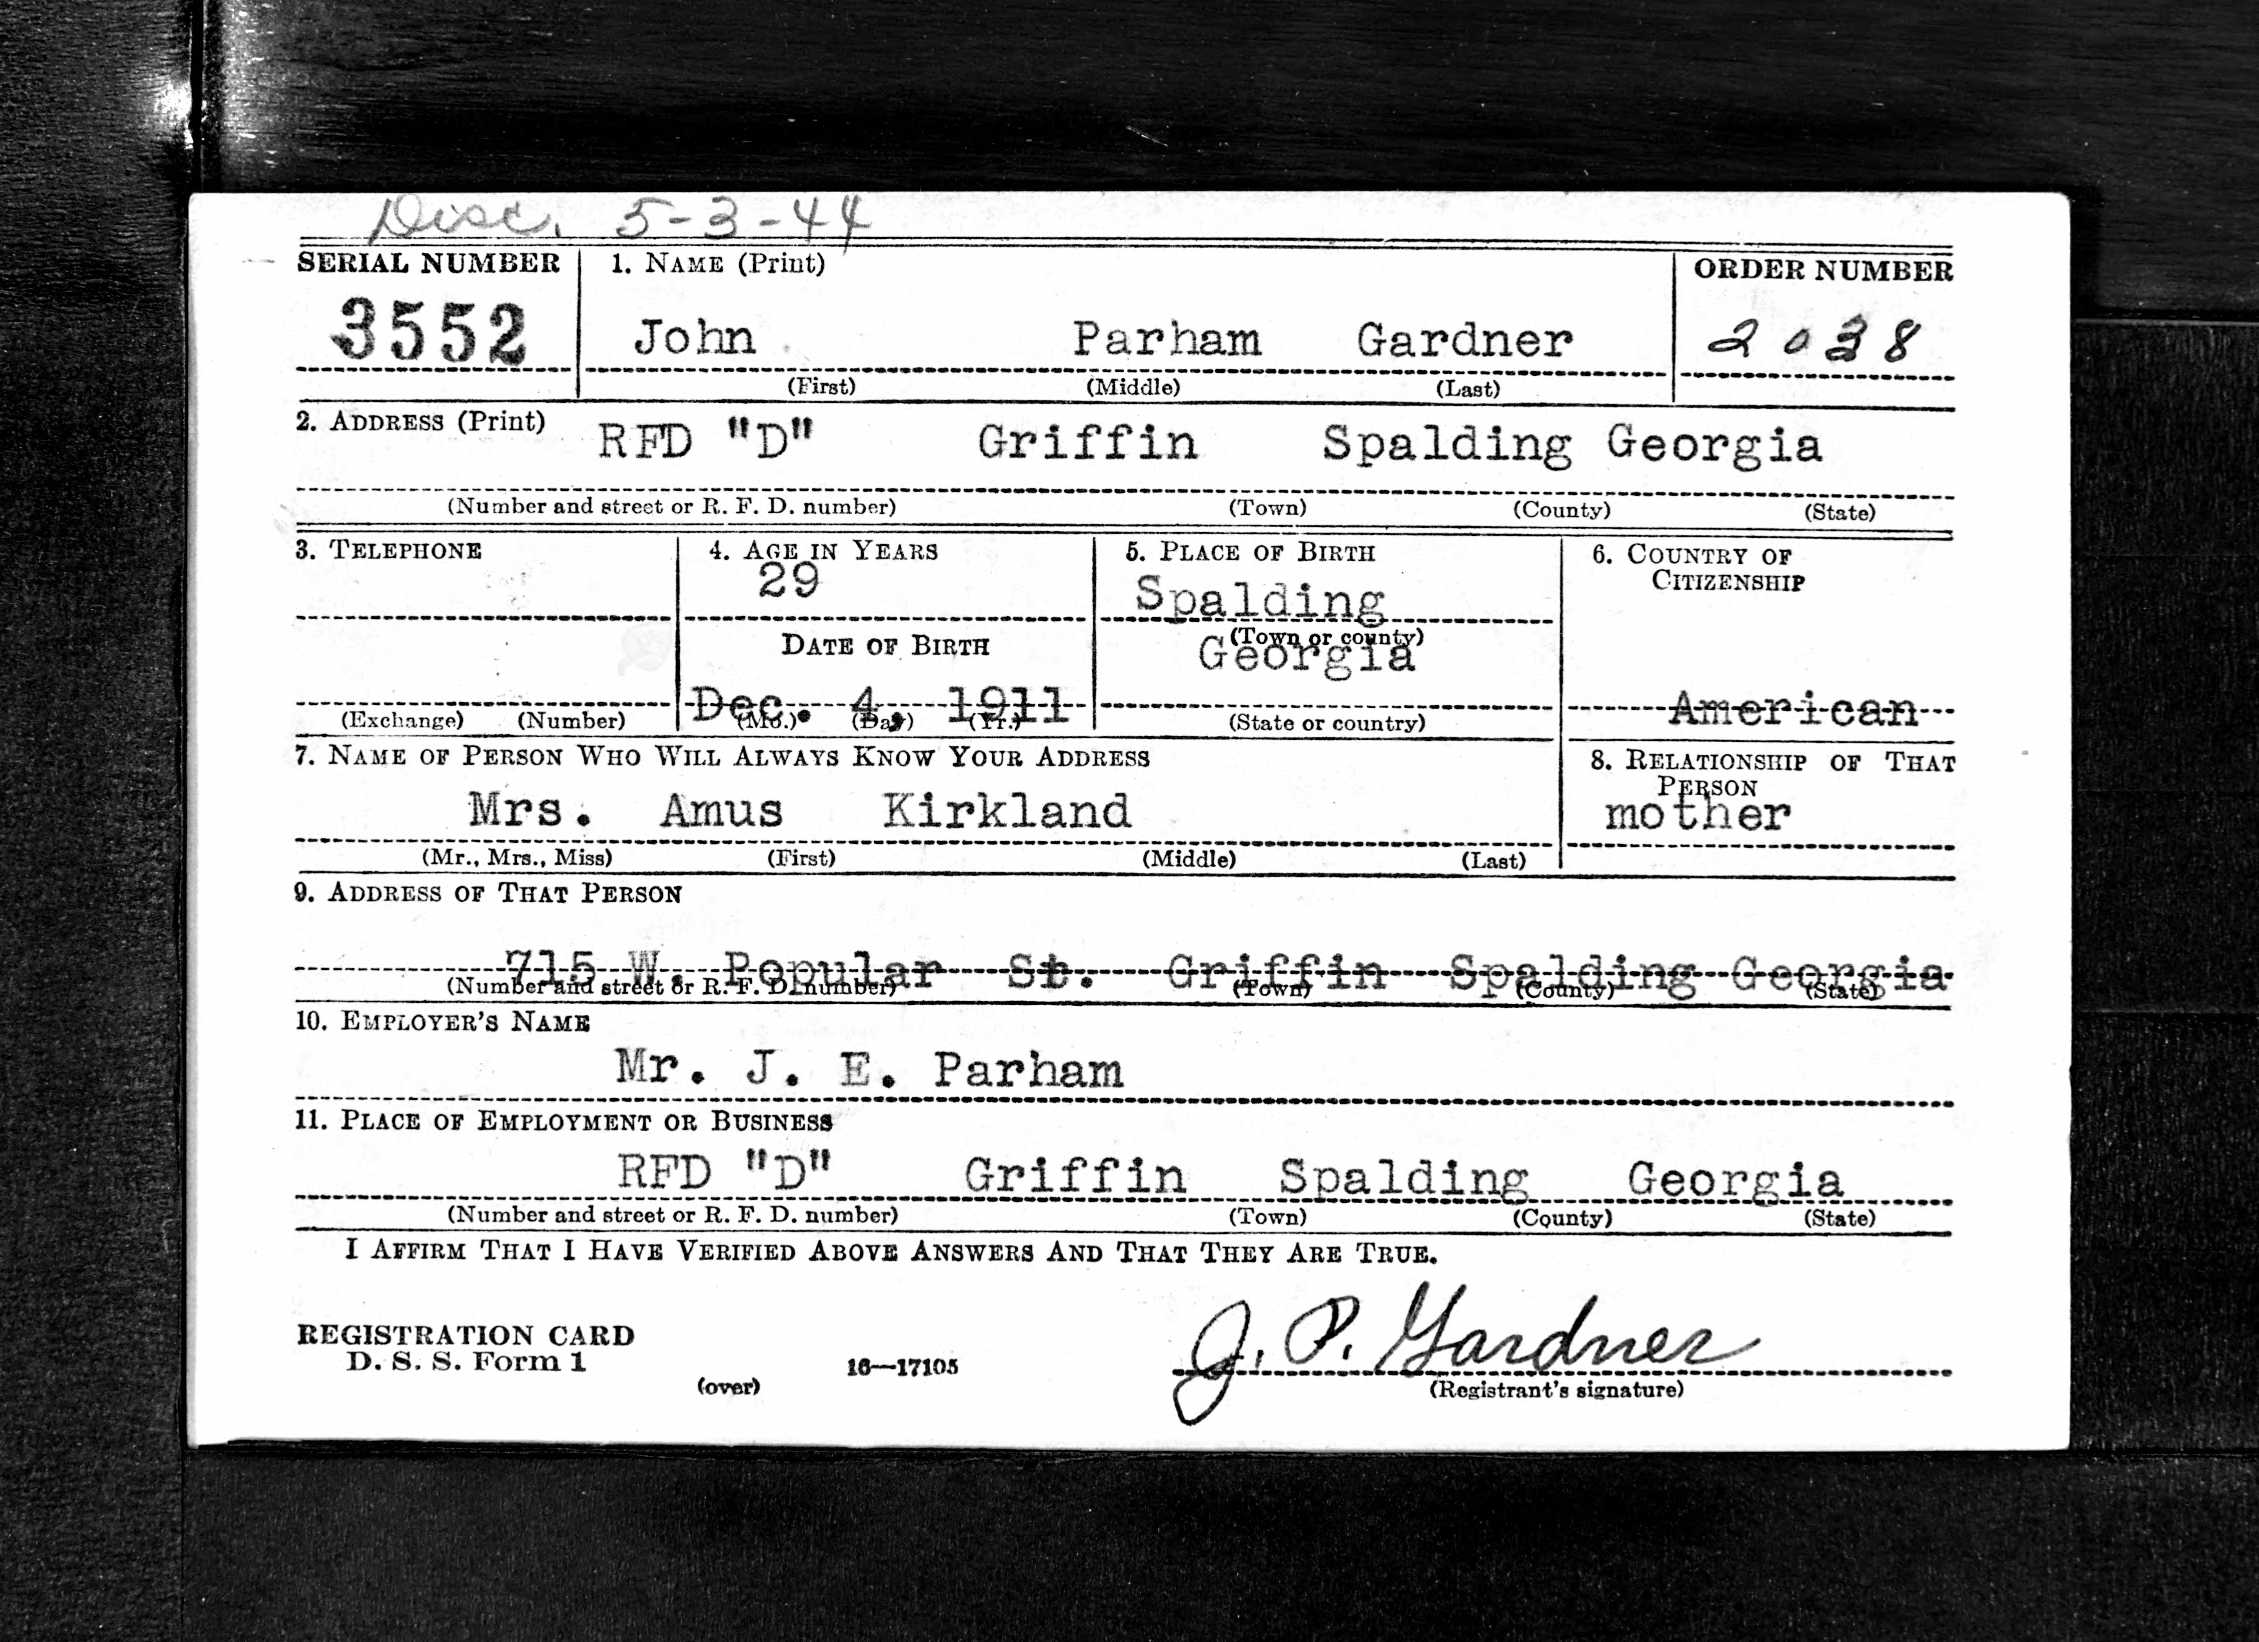 Disc. 5-3-44
SERIAL NUMBER 1. NAME (Print) ORDER NUMBER
3552 John Parham Gardner 2038
(First) (Middle) (Last)
2. ADDRESS (Print) RFD "D" Griffin Spalding Georgia
(Number and street or R. F. D. number) (Town) (County) (State)
3. TELEPHONE 4. AGE IN YEARS 5. PLACE OF BIRTH 6. COUNTRY OF
CITIZENSHIP
29 Spalding
DATE OF BIRTH (Town or county)
Georgia
Dec. 4, 1911 American
(Exchange) (Number) (Mo.) (Day) (Yr.) (State or country)
7. NAME OF PERSON WHO WILL ALWAYS KNOW YOUR ADDRESS 8. RELATIONSHIP OF THAT
PERSON
Mrs. Amus Kirkland mother
(Mr., Mrs., Miss) (First) (Middle) (Last)
9. ADDRESS OF THAT PERSON
715 W. Popular St. Griffin Spalding Georgia
(Number and street or R. F. D. number) (Town) (County) (State)
10. EMPLOYER'S NAME
Mr. J. E. Parham
11. PLACE OF EMPLOYMENT OR BUSINESS
RFD "D" Griffin Spalding Georgia
(Number and street or R. F. D. number) (Town) (County) (State)
I AFFIRM THAT I HAVE VERIFIED ABOVE ANSWERS AND THAT THEY ARE TRUE.
REGISTRATION CARD
D. S. S. Form 1 16—17105 J. P. Gardner
(over) (Registrant's signature)